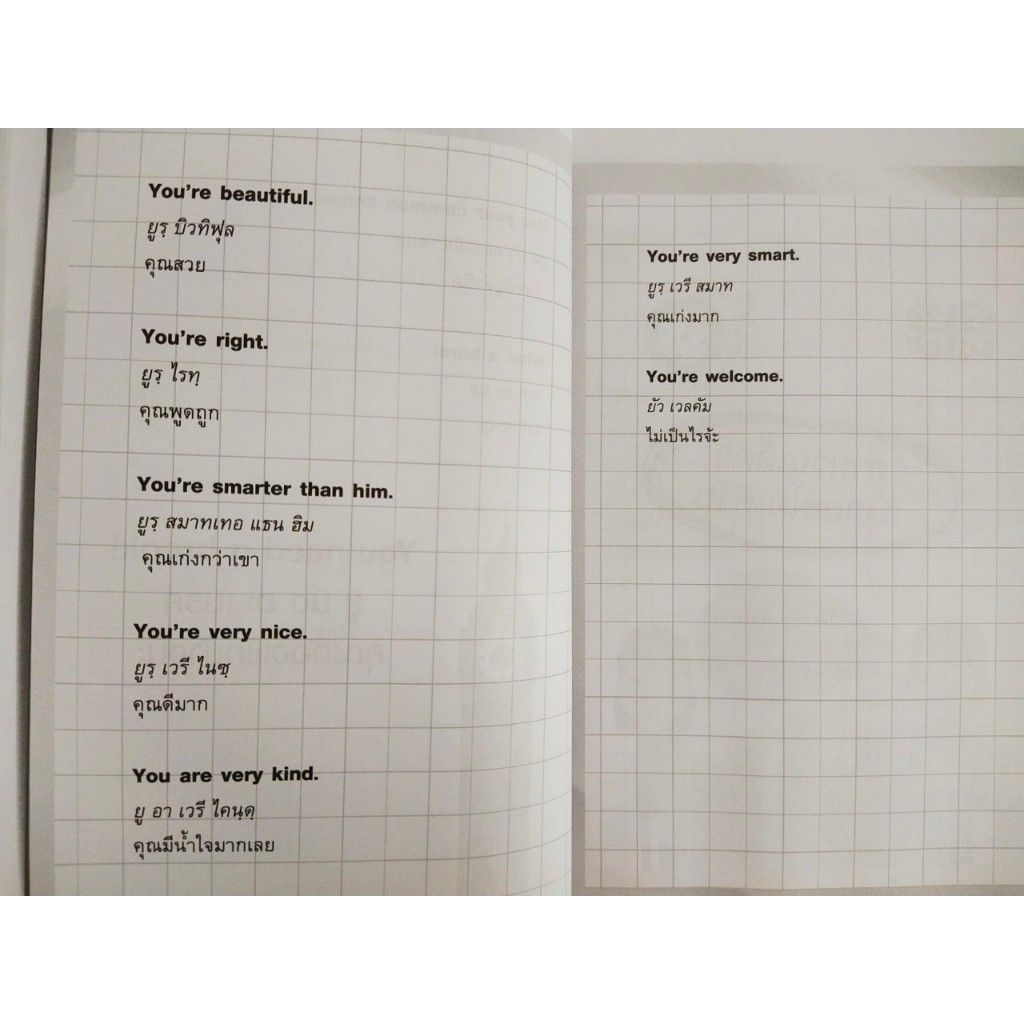 You're beautiful.
ยูรฺ บิวทิฟุล
คุณสวย
You're right.
ยูรฺ ไรทฺ
คุณพูดถูก
You're smarter than him.
ยูรฺ สมาทเทอ แธน ฮิม
คุณเก่งกว่าเขา
You're very nice.
ยูรฺ เวรี ไนซฺ
คุณดีมาก
You are very kind.
ยู อา เวรี ไคนฺดฺ
คุณมีน้ำใจมากเลย
You're very smart.
ยูรฺ เวรี สมาท
คุณเก่งมาก
You're welcome.
ยัว เวลคัม
ไม่เป็นไรจ้ะ